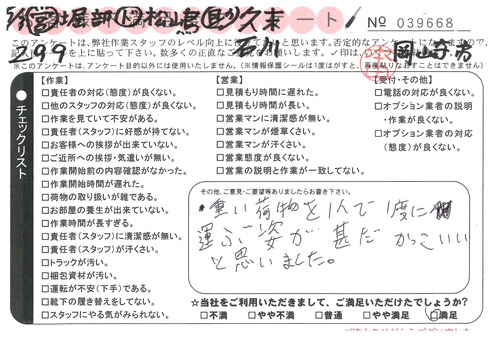 アンケート
No 039668
5/8 営 堀部 下 松山 富 ま 久末
石川
岡山 市
399
このアンケートは、弊社作業スタッフのレベル向上に
と思います。否定的なアンケートになりますので、
※このアンケートは、アンケート目的以外には使用いたしません。(※情報保護シールは1度はがすと、再度貼りなおすことはできません)
チェックリスト
【作業】
□責任者の対応(態度)が良くない。
□他のスタッフの対応(態度)が良くない。
□作業を見ていて不安がある。
□責任者(スタッフ)に好感が持てない。
□お客様への挨拶が出来ていない。
□ご近所への挨拶・気遣いが無い。
□作業開始前の内容確認がなかった。
□作業開始時間が遅れた。
□荷物の取り扱いが雑である。
□お部屋の養生が出来ていない。
□作業時間が長すぎる。
□責任者(スタッフ)に清潔感が無い。
□責任者(スタッフ)が汗くさい。
□トラックが汚い。
□梱包資材が汚い。
□運転が不安(下手)である。
□靴下の履き替えをしてない。
□スタッフにやる気がみられない。
【営業】
□見積もり時間に遅れた。
□見積もり時間が長い。
□営業マンに清潔感が無い。
□営業マンが煙草くさい。
□営業マンが汗くさい。
□営業態度が良くない。
□営業の説明と作業が一致してない。
【受付・その他】
□電話の対応が良くない。
□オプション業者の説明
・作業が良くない。
□オプション業者の対応
(態度)が良くない。
その他、ご意見・ご要望等ありましたらお書き下さい。
・重い荷物を1人で1度に
運ぶ姿が甚だかっこいい
と思いました。
☆当社をご利用いただきまして、ご満足いただけたでしょうか?
□不満 □やや不満 □普通 □やや満足 □満足